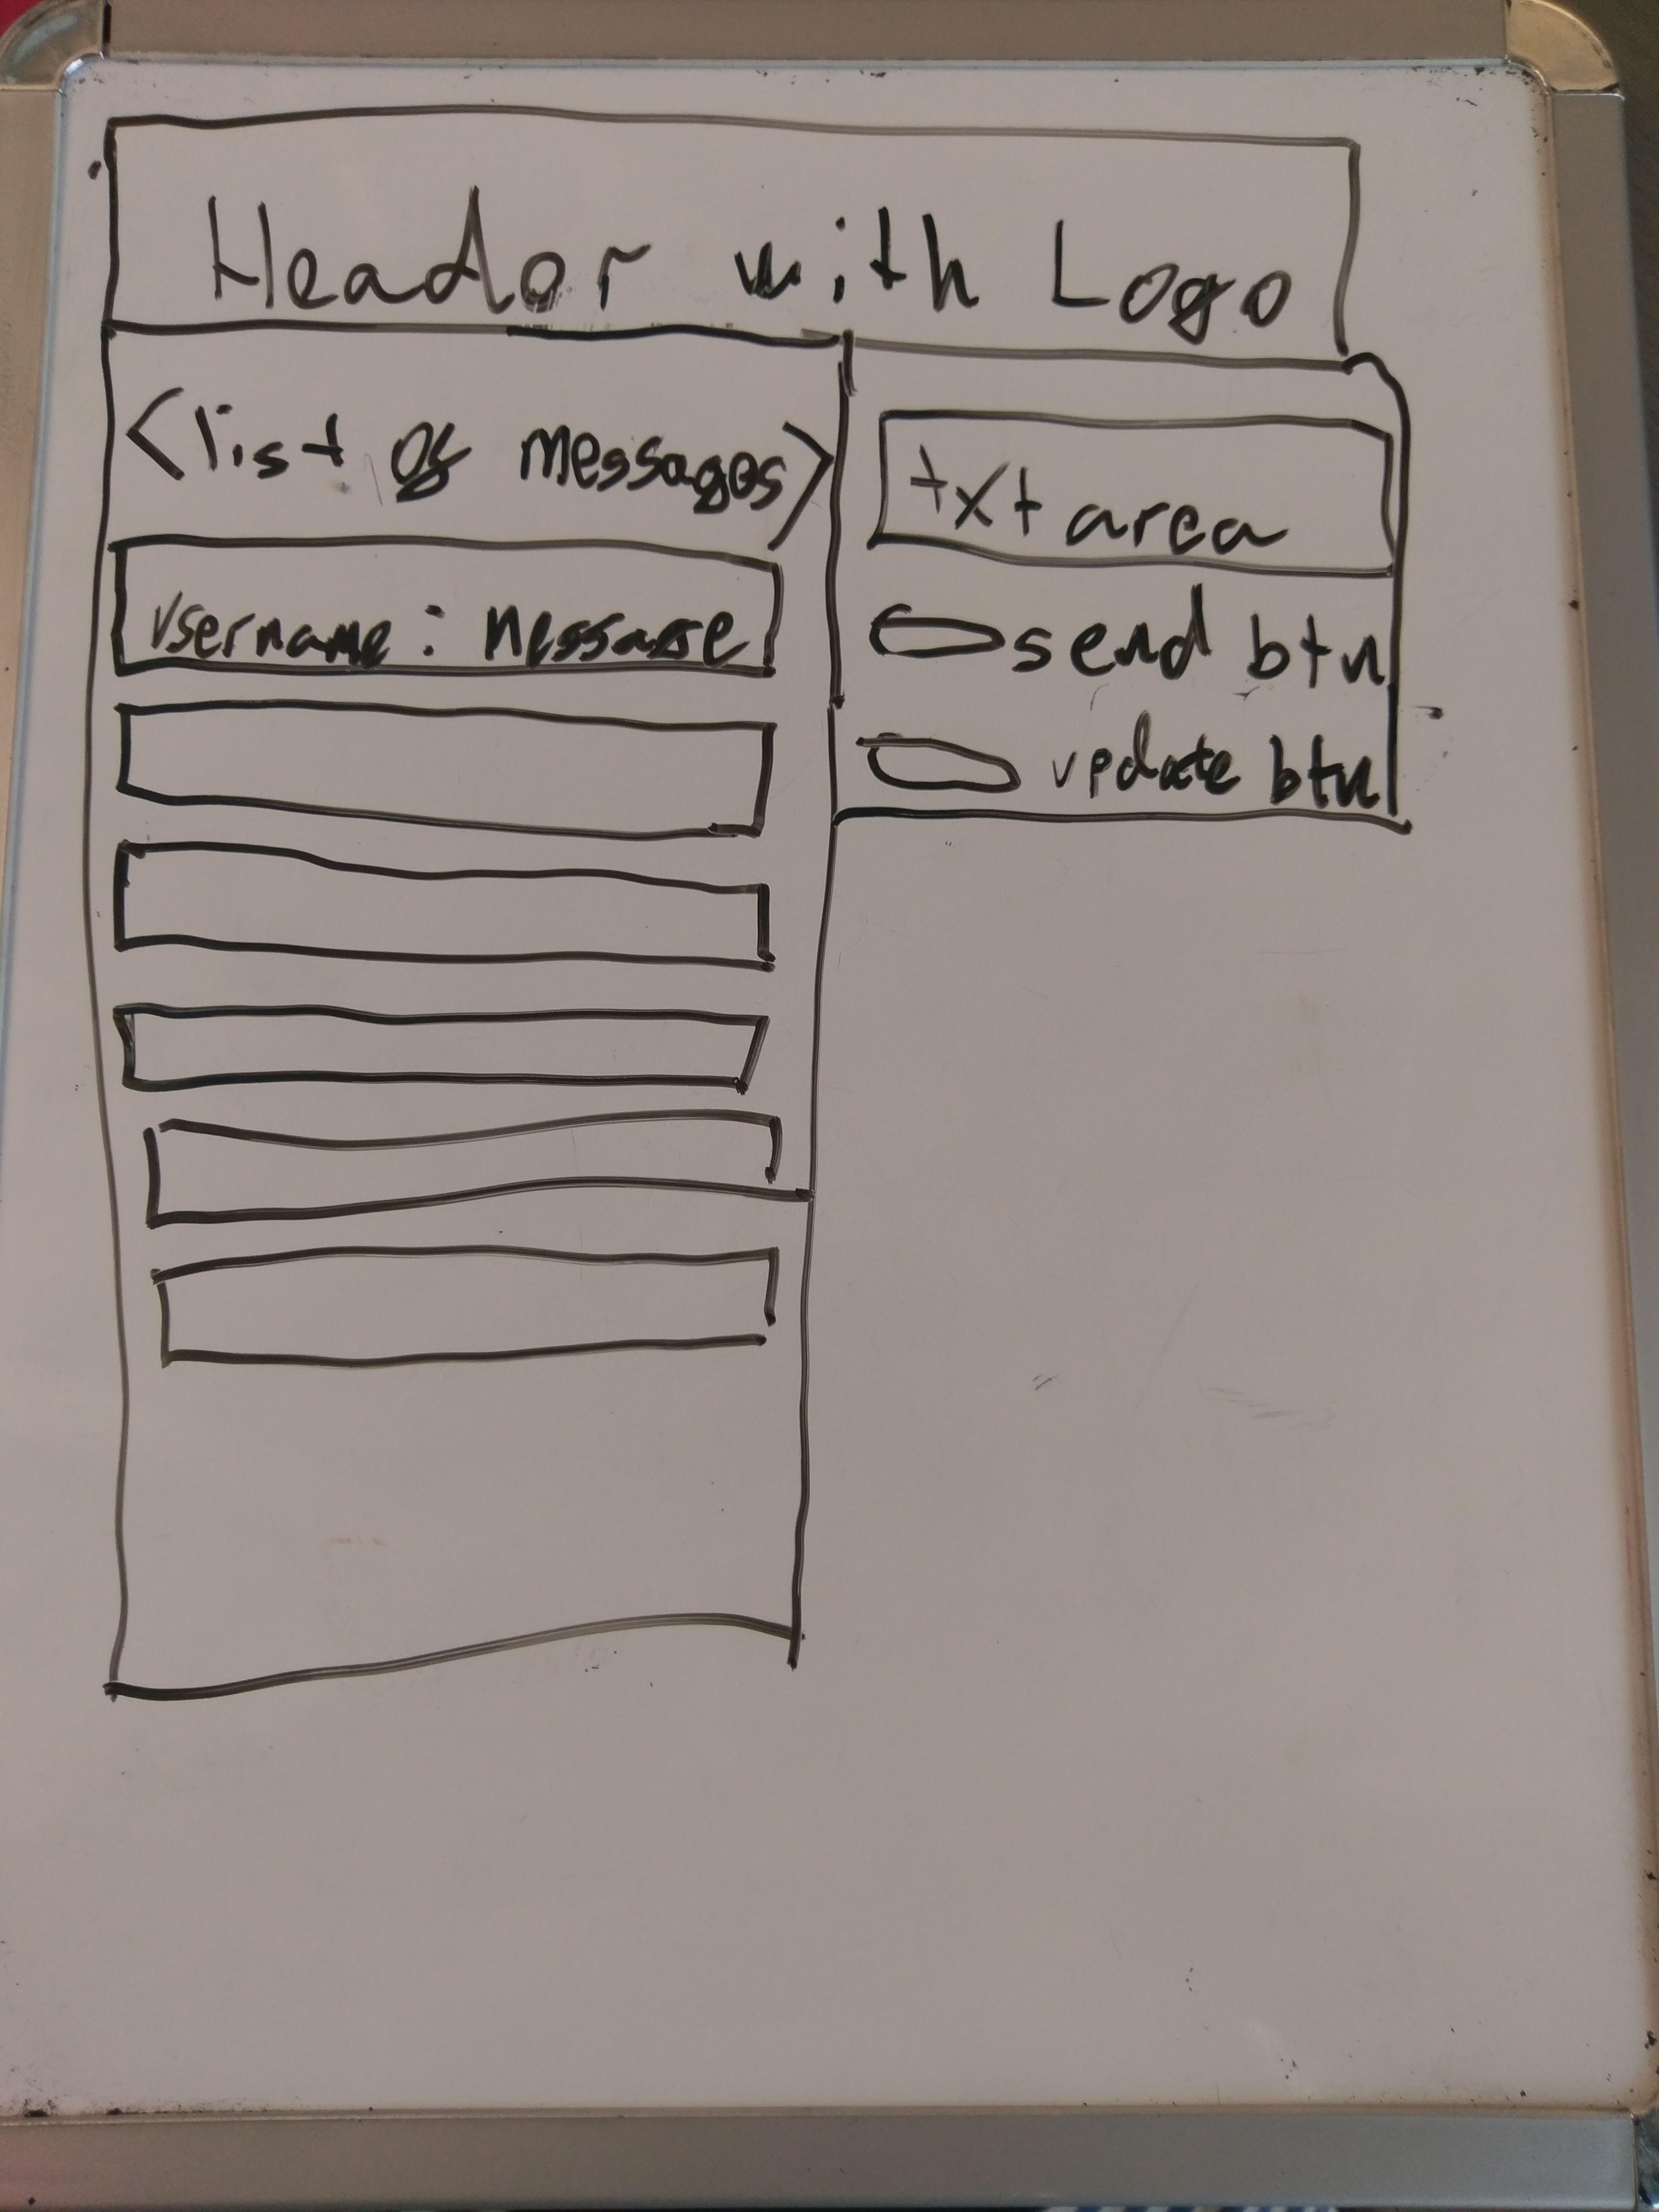 Header with Logo
<list of messages>
username: message
txt area
send btn
update btn